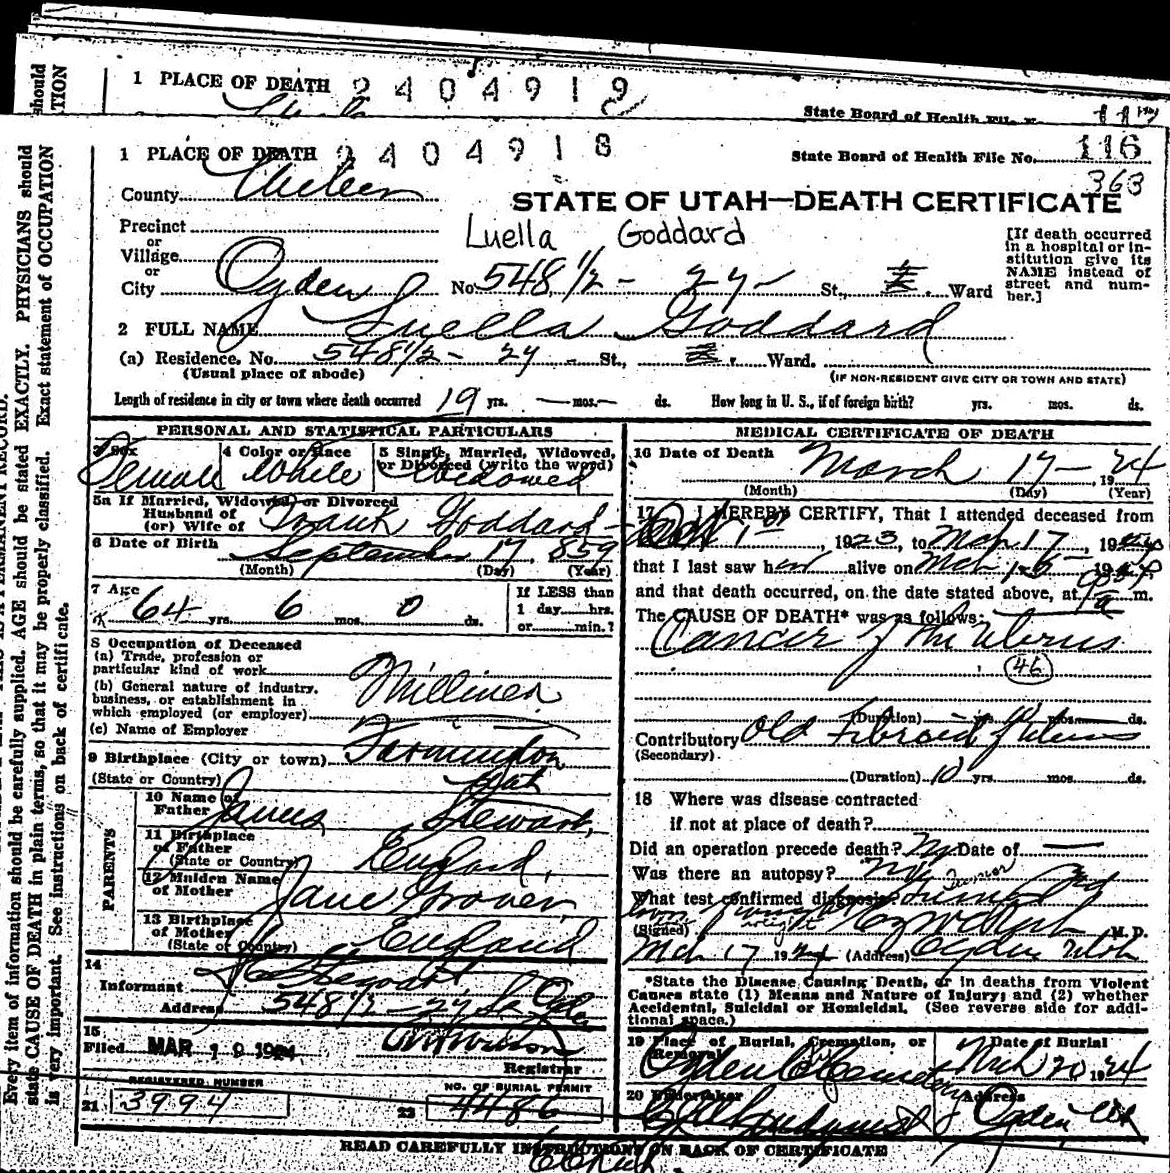 1 PLACE OF DEATH 2404919
State Board of Health File
should
TION
1 PLACE OF DEATH 2404918
State Board of Health File No. 116
363
County
STATE OF UTAH—DEATH CERTIFICATE
Precinct
or
Village
or
City Ogden
Luella Goddard
No 548 1/2 - 24 - St., Ward
[If death occurred
in a hospital or in-
stitution give its
NAME instead of
street and num-
ber.]
2 FULL NAME Luella Goddard
(a) Residence. No. 548 1/2 - 24 - St., Ward.
(Usual place of abode)
(IF NON-RESIDENT GIVE CITY OR TOWN AND STATE)
Length of residence in city or town where death occurred 19 yrs. — mos. — ds. How long in U. S., if of foreign birth? yrs. mos. ds.
PERSONAL AND STATISTICAL PARTICULARS
3 Sex
Female
4 Color or Race
White
5 Single, Married, Widowed,
or Divorced (write the word)
Widowed
5a If Married, Widowed, or Divorced
Husband of
(or) Wife of Frank Goddard
6 Date of Birth September 17 859
(Month) (Day) (Year)
7 Age
64 yrs. 6 mos. 0 ds.
If LESS than
1 day hrs.
or min.?
8 Occupation of Deceased
(a) Trade, profession or
particular kind of work
Milliner
(b) General nature of industry,
business, or establishment in
which employed (or employer)
(c) Name of Employer
9 Birthplace (City or town) Farmington
(State or Country) Utah
PARENTS
10 Name of
Father James Stewart
11 Birthplace
of Father
(State or Country) England
12 Maiden Name
of Mother Jane Grover
13 Birthplace
of Mother
(State or Country) England
14
Informant Stewart
Address 548 1/2 - 24 St Ogden
15
Filed MAR 19 1924
Registrar
REGISTERED NUMBER
21 3994
NO. OF BURIAL PERMIT
22 4486
MEDICAL CERTIFICATE OF DEATH
16 Date of Death March 17 - 1924
(Month) (Day) (Year)
17 I HEREBY CERTIFY, That I attended deceased from
Oct 1st, 1923, to Mch 17, 1924
that I last saw her alive on Mch 15 1924
and that death occurred, on the date stated above, at m.
The CAUSE OF DEATH* was as follows:
Cancer of the Uterus
46
(Duration) yrs. mos. ds.
Contributory Old Fibroid of Uterus
(Secondary)
(Duration) 10 yrs. mos. ds.
18 Where was disease contracted
if not at place of death?
Did an operation precede death? No Date of —
Was there an autopsy? No
What test confirmed diagnosis?
(Signed) M.D.
Mch 17 1924 (Address) Ogden Utah
*State the Disease Causing Death, or in deaths from Violent
Causes state (1) Means and Nature of Injury; and (2) whether
Accidental, Suicidal or Homicidal. (See reverse side for addi-
tional space.)
19 Place of Burial, Cremation, or
Removal
Ogden City Cemetery
Date of Burial
Mch 20 1924
20 Undertaker
Address
Ogden Utah
READ CAREFULLY INSTRUCTIONS ON BACK OF CERTIFICATE
Every item of information should be carefully supplied. AGE should be stated EXACTLY. PHYSICIANS should
state CAUSE OF DEATH in plain terms, so that it may be properly classified. Exact statement of OCCUPATION
is very important. See instructions on back of certificate.